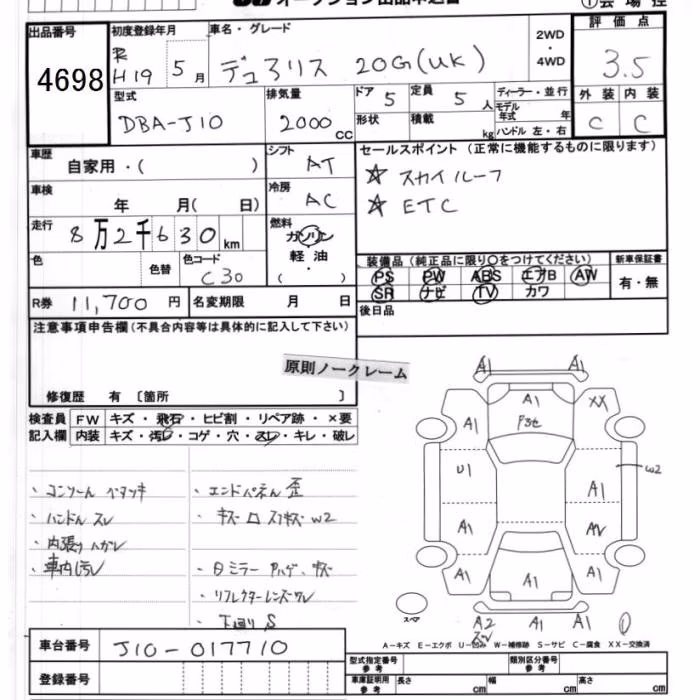 オークション出品申込書
①会場控
出品番号
4698
初度登録年月
H19 5月
車名・グレード
デュアリス 20G(UK)
2WD
・
4WD
評価点
3.5
外装 内装
C C
型式
DBA-J10
排気量
2000 CC
ドア
5
定員
5 人
形状
積載
kg
ディーラー・並行
モデル年式 年
ハンドル 左・右
車歴
自家用・( )
シフト
AT
車検
年 月( 日)
冷房
AC
走行
8万2千630km
燃料
ガソリン
軽油
( )
色
色替
色コード
C30
R券
11,700円
名変期限 月 日
セールスポイント(正常に機能するものに限ります)
☆ スカイルーフ
☆ ETC
装備品(純正品に限り○をつけてください)
PS PW ABS エアB AW
SR ナビ TV カワ
新車保証書
有・無
後日品
注意事項申告欄(不具合内容等は具体的に記入して下さい)
原則ノークレーム
修復歴 有 〔箇所 〕
検査員 FW キズ・飛石・ヒビ割・リペア跡・×要
記入欄 内装 キズ・汚レ・コゲ・穴・スレ・キレ・破レ
・コンソール ベタツキ
・ハンドル スレ
・内張り ハガレ
・車内汚レ
・エンドパネル 歪
・キズ W2
・ミラー ハゲ、キズ
・リフレクターレンズワレ
・下回り S
A1 A1
A1 XX
A1 F3セ
U1 W2
A1
A1 AW
A1 A1 A1
スペア
A2 A1 A1
スレ
A-キズ E-エクボ U-凹み W-補修跡 S-サビ C-腐食 XX-交換済
車台番号
J10-017710
登録番号
型式指定番号
参考
類別区分番号
参考
車庫証明用
参考
長さ cm 幅 cm 高さ cm